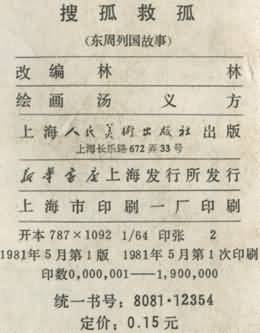 搜孤救孤
(东周列国故事)
改编 林 林
绘画 汤义方
上海人民美術出版社 出版
上海长乐路672弄33号
新华書店上海发行所发行
上海市印刷一厂印刷
开本 787×1092 1/64 印张 2
1981年5月第1版 1981年5月第1次印刷
印数0,000,001——1,900,000
统一书号：8081·12354
定价：0.15元